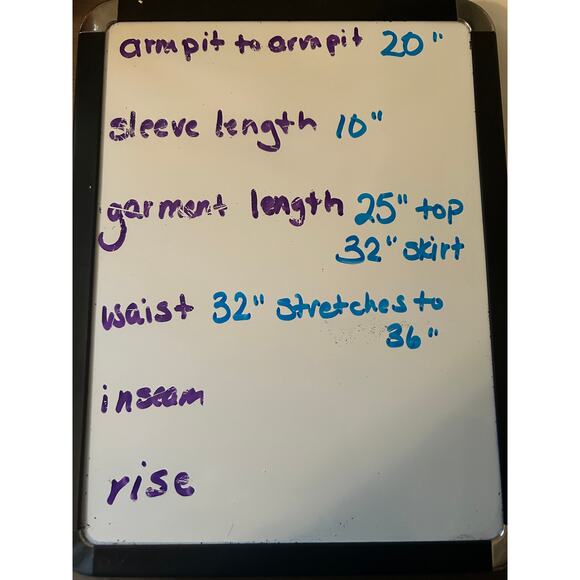 armpit to armpit 20"
sleeve length 10"
garment length 25" top
32" skirt
waist 32" stretches to
36"
inseam
rise